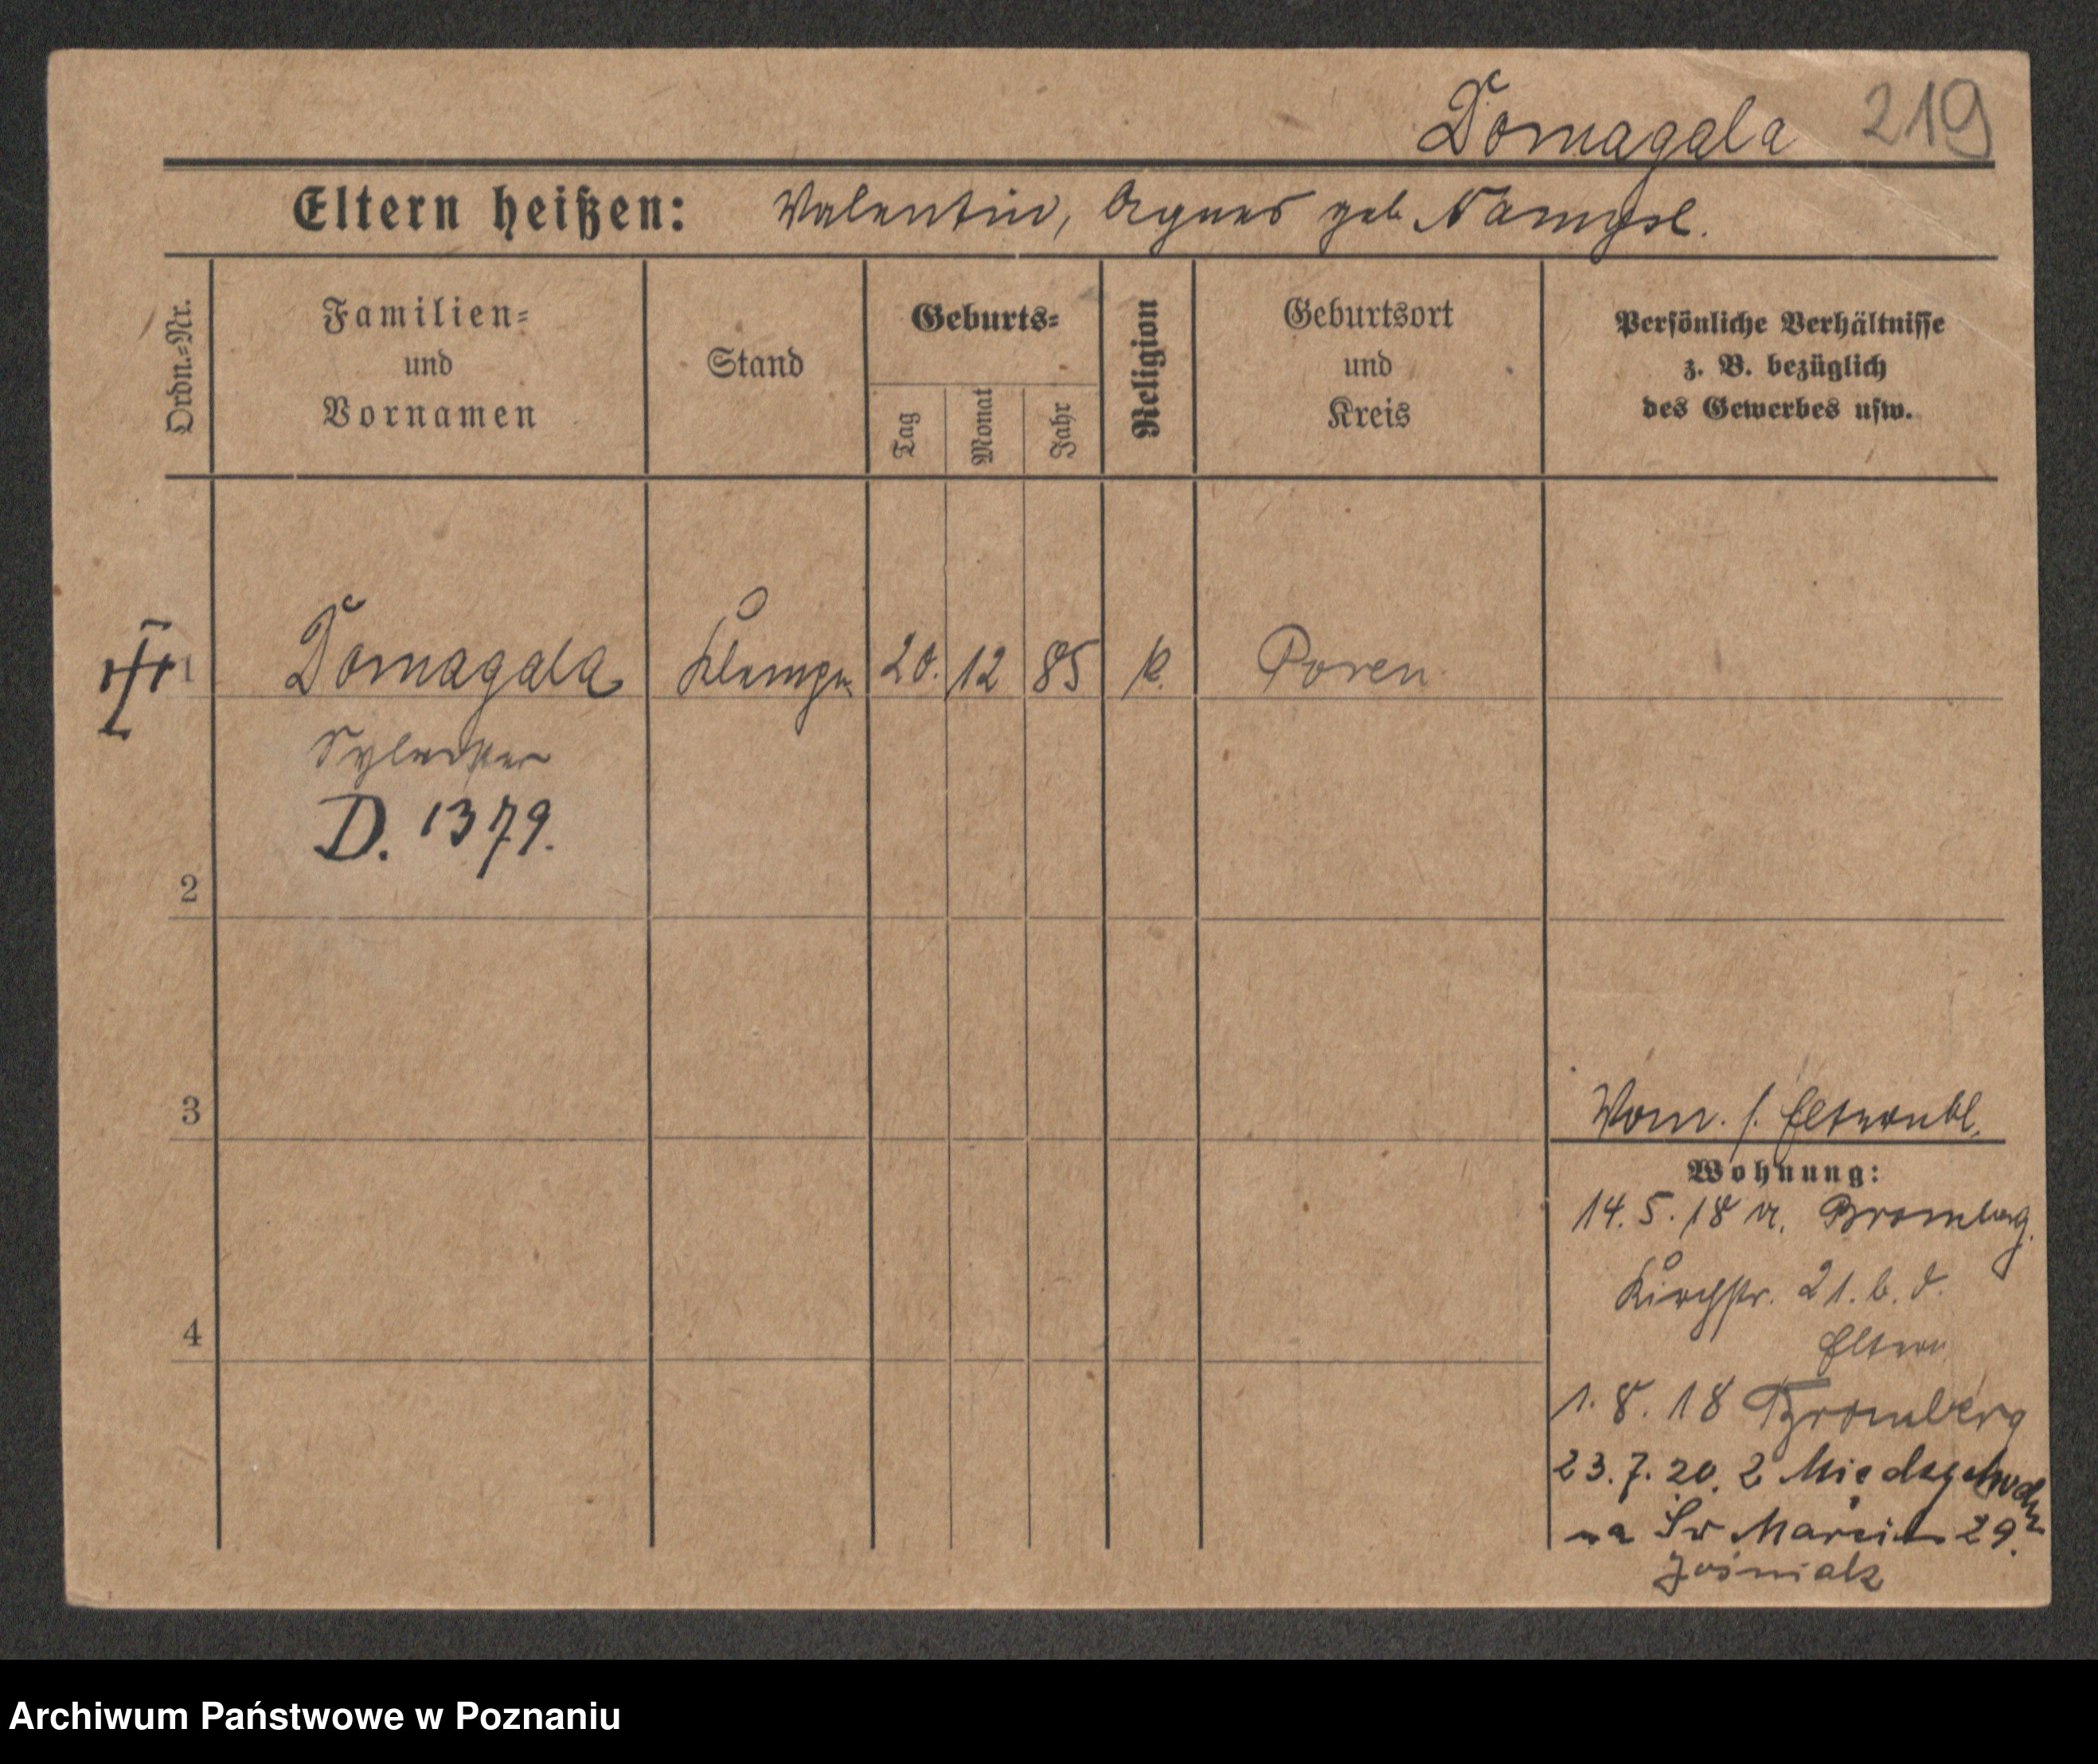 Domagala 219
Eltern heißen: Valentin, Agnes geb. Namysl.
Ordn.=Nr.
Familien=
und
Vornamen
Stand
Geburts=
Tag
Monat
Jahr
Religion
Geburtsort
und
Kreis
Persönliche Verhältnisse
z. B. bezüglich
des Gewerbes usw.
1 Domagala 20. 12 85 k. Posen
Sylvester
D. 1379.
2
3
4
Vorm. s. Elternbl.
Wohnung:
14. 5. 18 v. Bromberg.
Kirchstr. 21. b. d.
Eltern
1. 8. 18 Bromberg
23. 7. 20. z
na Św Marcin 29.
Jośniak
Archiwum Państwowe w Poznaniu